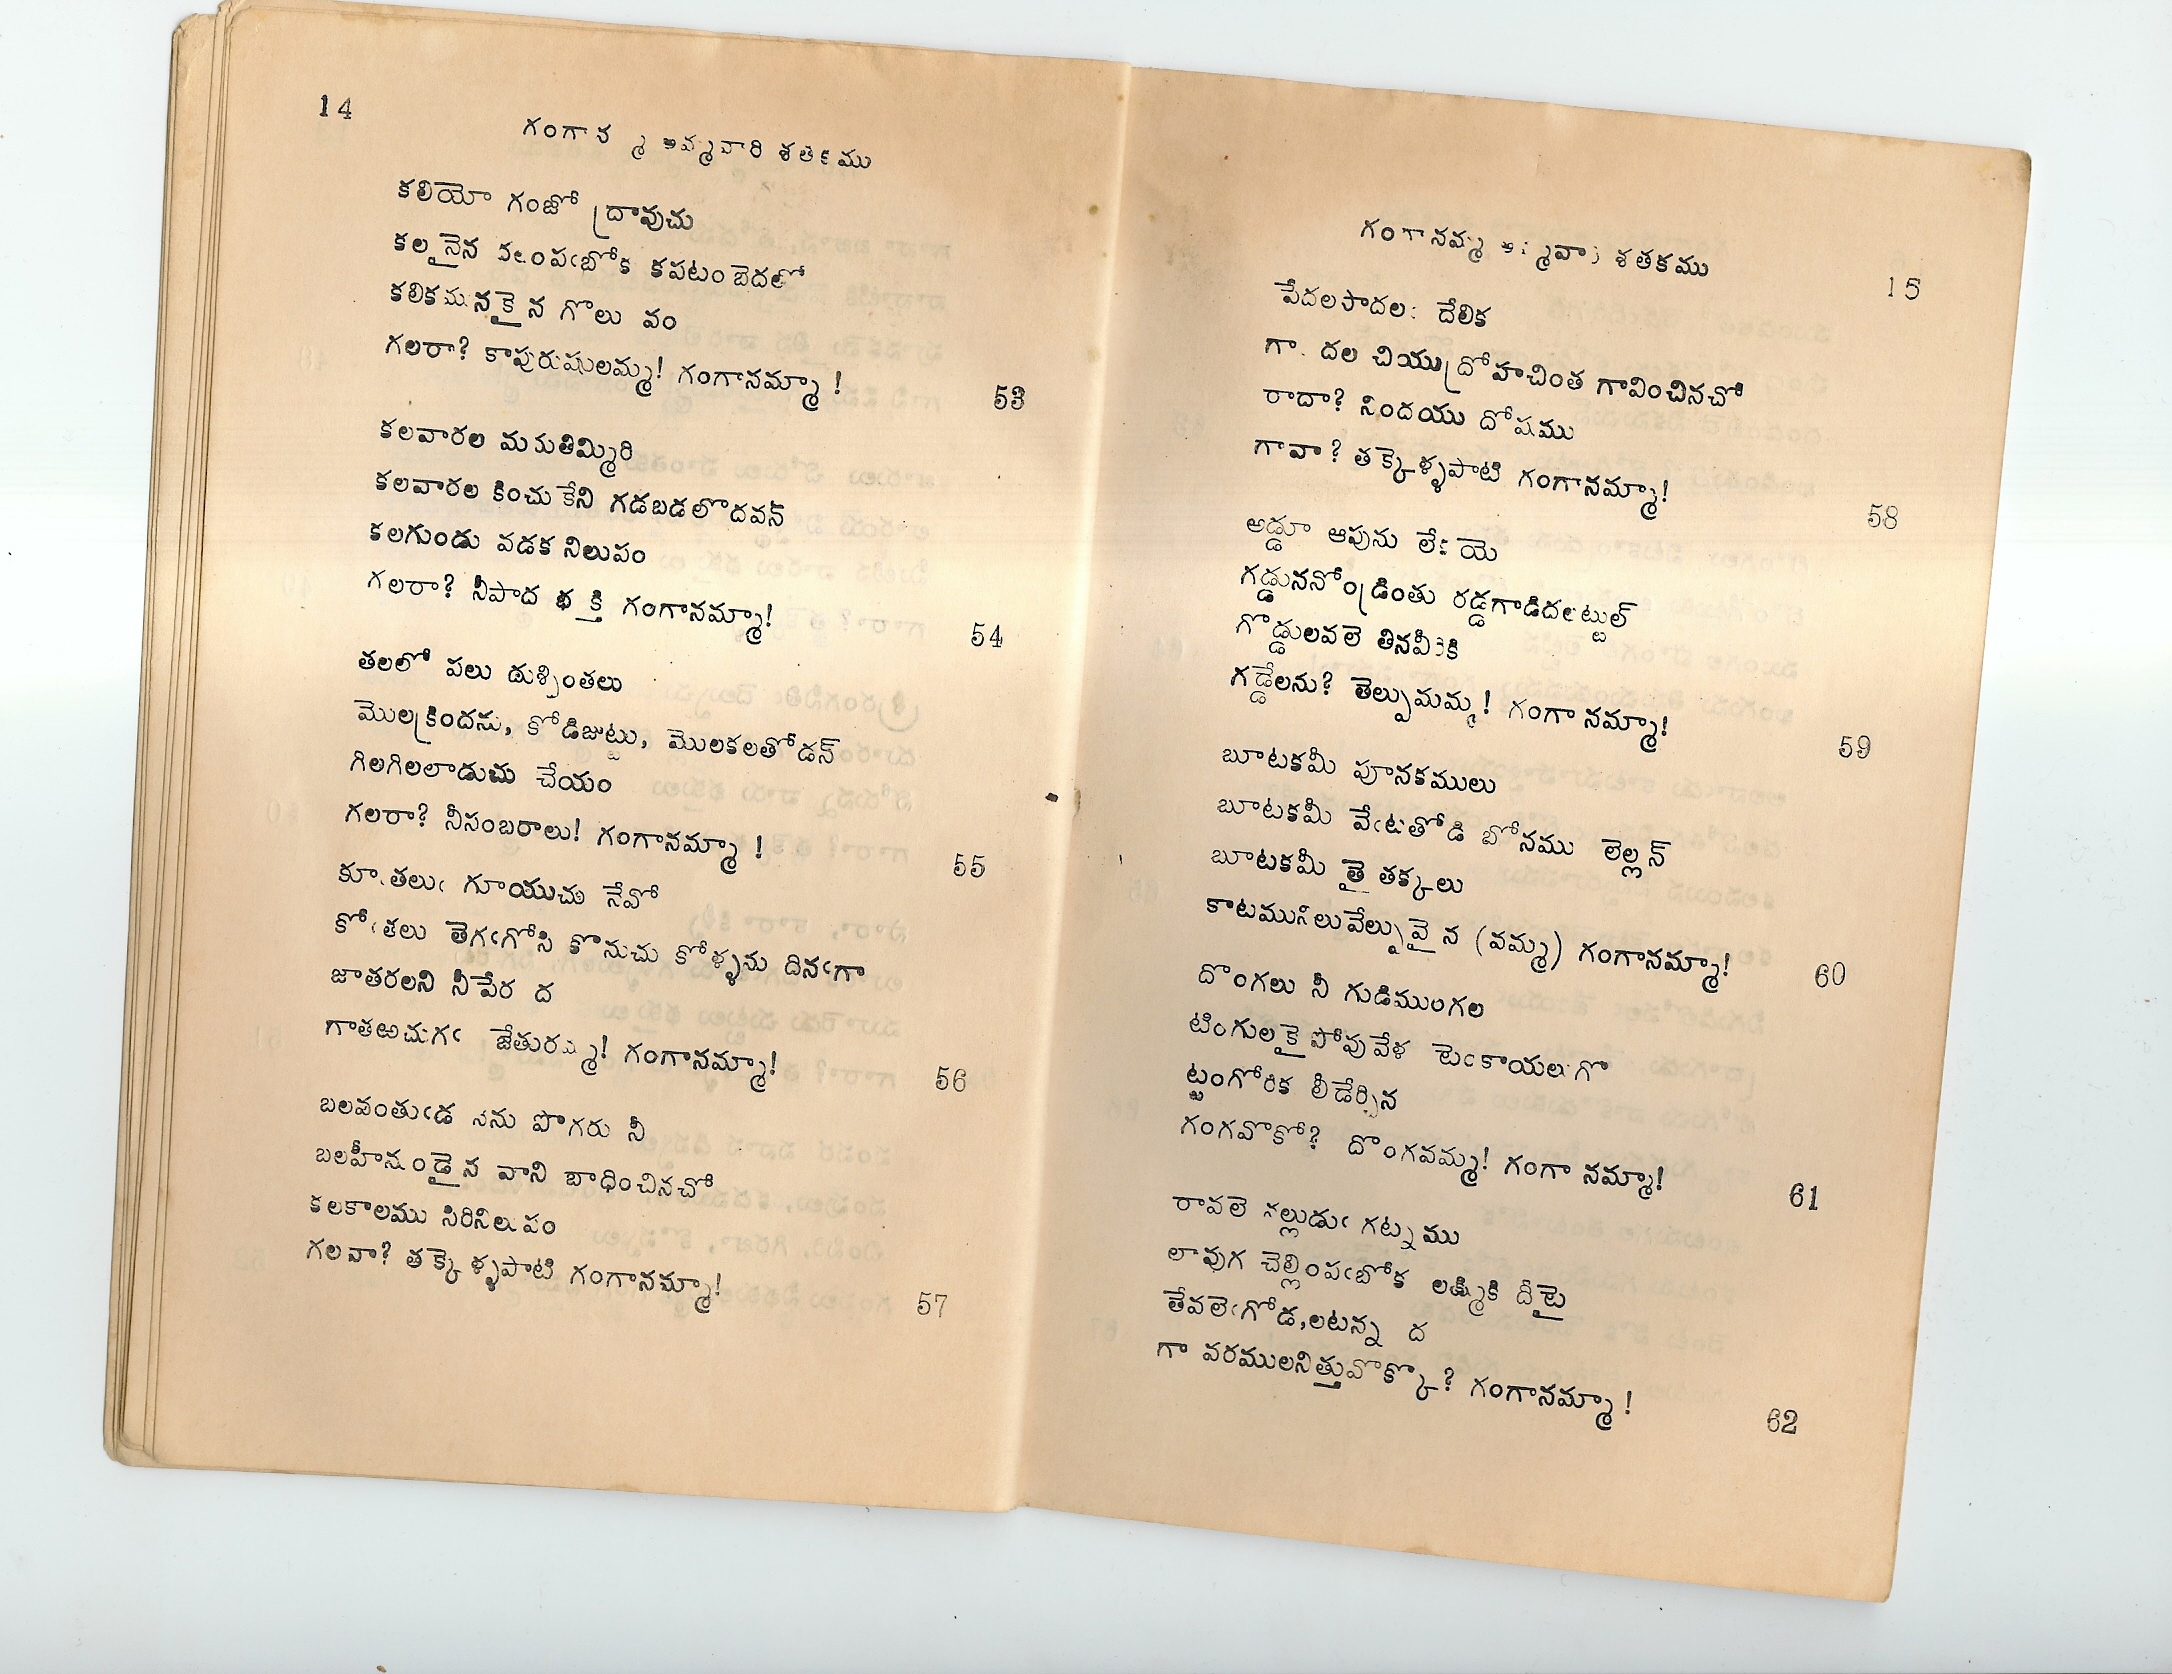 14
గంగానమ్మ అమ్మవారి శతకము
కలియో గంజో ద్రావుచు
కల నైన పోక కపటంబెదలో
కలికమునకైన గొలు వం
గలరా? కాపురుషులమ్మ! గంగానమ్మా !
53
కలవారల మమతిమ్మిరి
కలవారల కించుకేని గడబడలొదవన్
కలగుండు వడక నిలుపం
గలరా? నీపాద భక్తి గంగానమ్మా!
54
తలలో పలు దుశ్చింతలు
మొలక్రిందను, కోడిజుట్టు, మొలకలతోడన్
గిలగిలలాడుచు చేయం
గలరా? నీసంబరాలు! గంగానమ్మా !
55
కూఁతలుఁ గూయుచు నేవో
కోఁతలు తెగఁగోసి కొనుచు కోళ్ళను దినఁగా
జాతరలని నీపేర ద
గాతఱచుగఁ జేతురమ్మ! గంగానమ్మా!
56
బలవంతుఁడ నను పొగరు నీ
బలహీనుండైన వాని బాధించినచో
కలకాలము సిరినిలుపం
గలవా? తక్కెళ్ళపాటి గంగానమ్మా!
57
గంగానమ్మ అమ్మవారి శతకము
15
పేదలసాదల దేలిక
గా దల చియుద్రోహచింత గావించినచో
రాదా? నిందయు దోషము
గావా? తక్కెళ్ళపాటి గంగానమ్మా!
58
అడ్డూ ఆపును లేకయె
గడ్డుననోండ్రింతు రడ్డగాడిదలట్టుల్
గొడ్డులవలె తినవీరికి
గడ్డేలను? తెల్పుమమ్మ! గంగానమ్మా!
59
బూటకమీ పూనకములు
బూటకమీ వేఁటతోడి బోనము లెల్లన్
బూటకమీ తై తక్కలు
కాటమునిలువేల్పువైన (వమ్మ) గంగానమ్మా!
60
దొంగలు నీ గుడిముంగల
టింగులకై పోవువేళ టెంకాయలుగొ
ట్టంగోరిక లీడేర్చిన
గంగవొకో? దొంగవమ్మ! గంగానమ్మా!
61
రావలె నల్లుడుఁ గట్నము
లావుగ చెల్లింపఁబోక లక్ష్మికి దీటై
తేవలెఁగోడ,లటన్న ద
గా వరములనిత్తువొక్కొ? గంగానమ్మా !
62